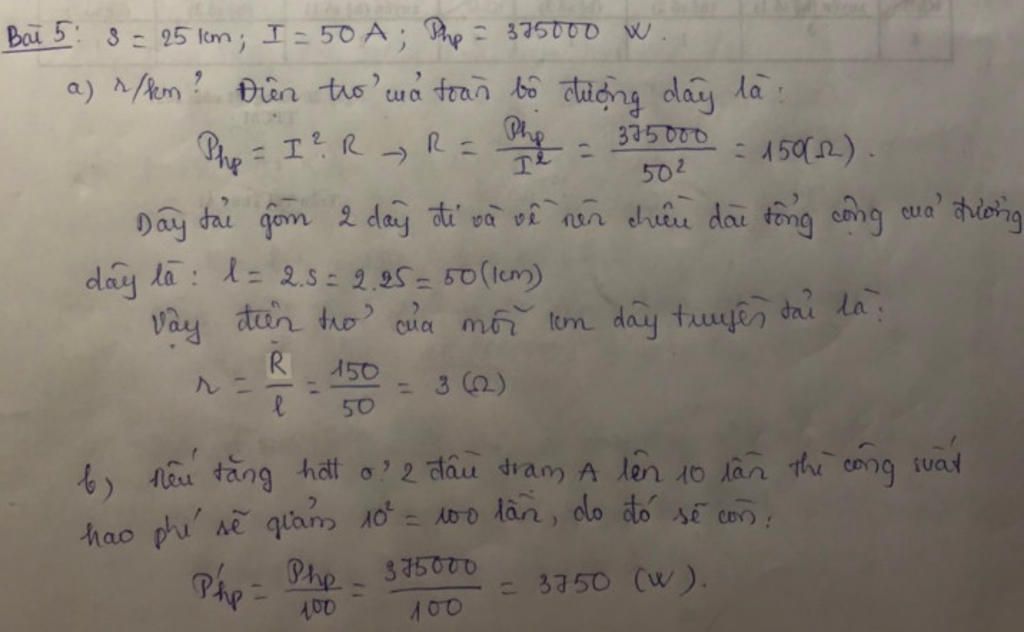 Bài 5: s = 25 km; I = 50 A; Php = 375000 W.
a) r/km? Điện trở của toàn bộ đường dây là:
Php = I². R → R = Php/I² = 375000/50² = 150(Ω).
Dây tải gồm 2 dây đi và về nên chiều dài tổng cộng của đường
dây là: l = 2.s = 2.25 = 50 (km)
Vậy điện trở của mỗi km dây truyền tải là:
r = R/l = 150/50 = 3 (Ω)
b) nếu tăng hđt ở 2 đầu trạm A lên 10 lần thì công suất
hao phí sẽ giảm 10² = 100 lần, do đó sẽ còn:
P'hp = Php/100 = 375000/100 = 3750 (W).